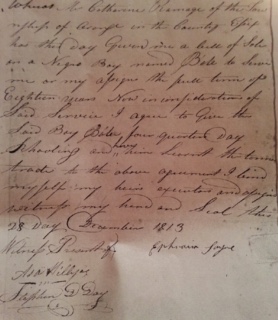 Whereas the Catherine Ramage of the town
ship of Orange in the County Essex
has this Day Given me a bill of Sale
on a Negro Boy named Bob to Serve
me or my assigns the full term of
Eighteen years Now in consideration of
Said Service I agree to Give the
Said Boy four quarters Day
Schooling and him Learnt the
trade to the above agreement I bind
myself my heirs executors and assigns
witness my hand and Seal this
28 Day December 1813
Witness Present Ephraim
Stephen D Day